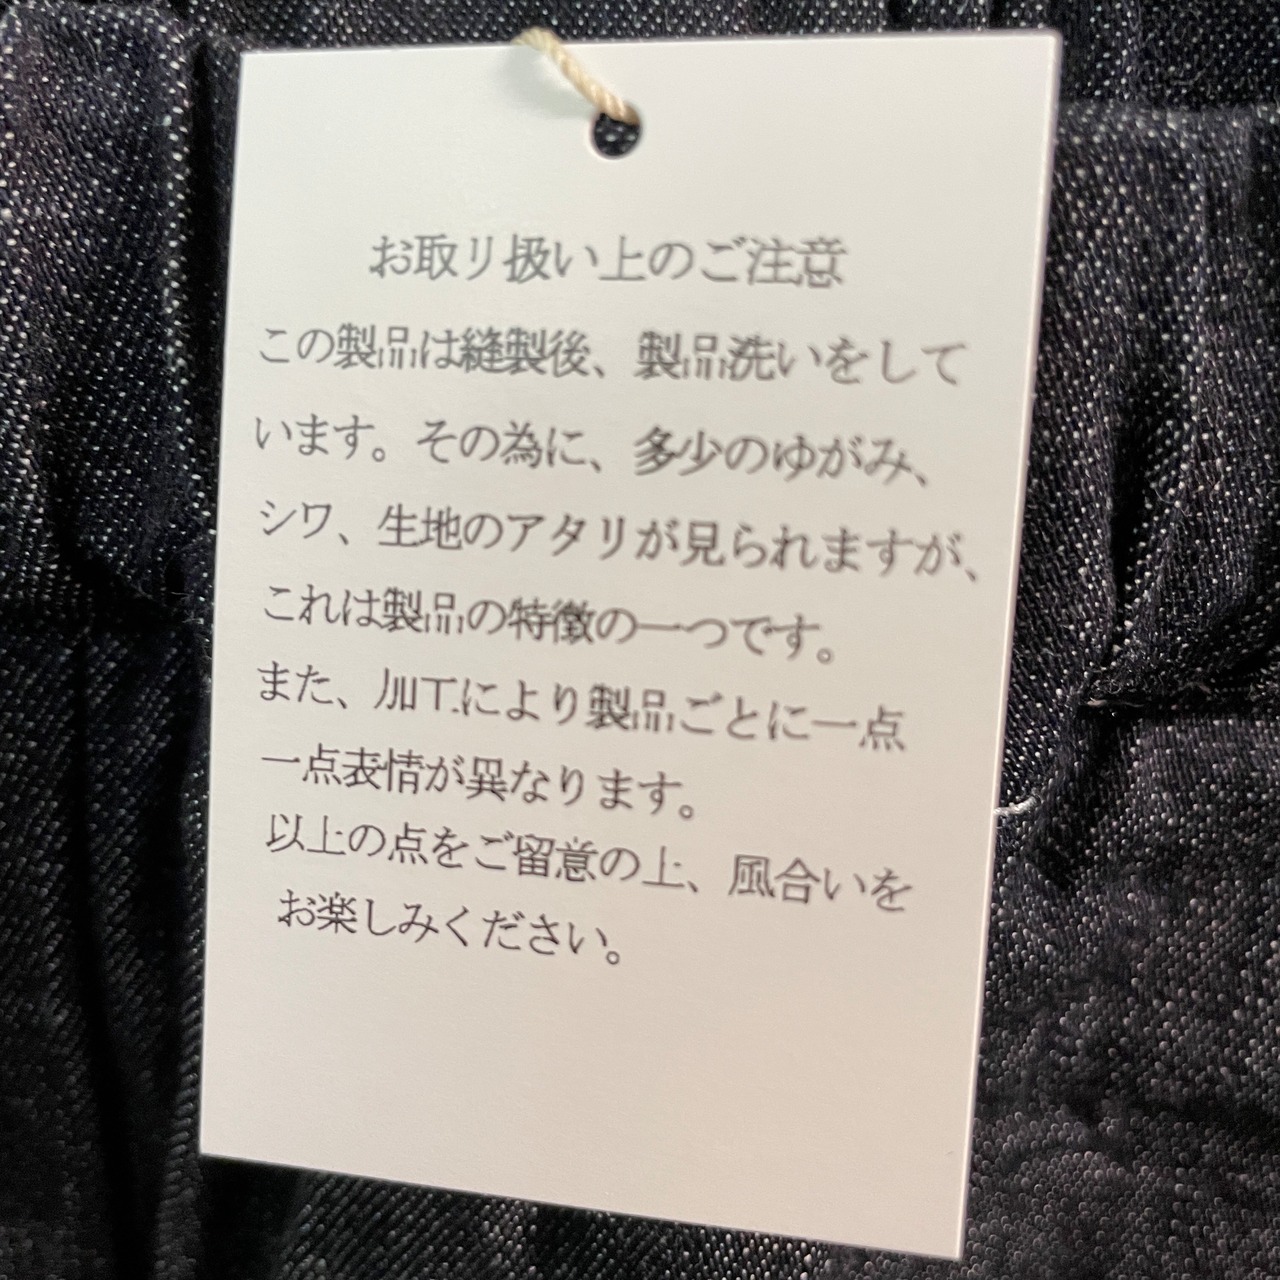 お取り扱い上のご注意
この製品は縫製後、製品洗いをして
います。その為に、多少のゆがみ、
シワ、生地のアタリが見られますが、
これは製品の特徴の一つです。
また、加工により製品ごとに一点
一点表情が異なります。
以上の点をご留意の上、風合いを
お楽しみください。